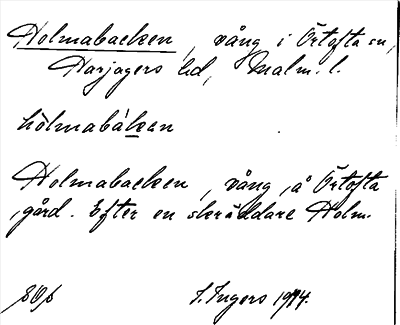 Holmabacken, vång i Örtofta sn,
Harjagers hd, Malm. l.
hòlmabákan
Holmabacken, vång, å Örtofta
gård. Efter en skräddare Holm.
I. Ingers 1944.